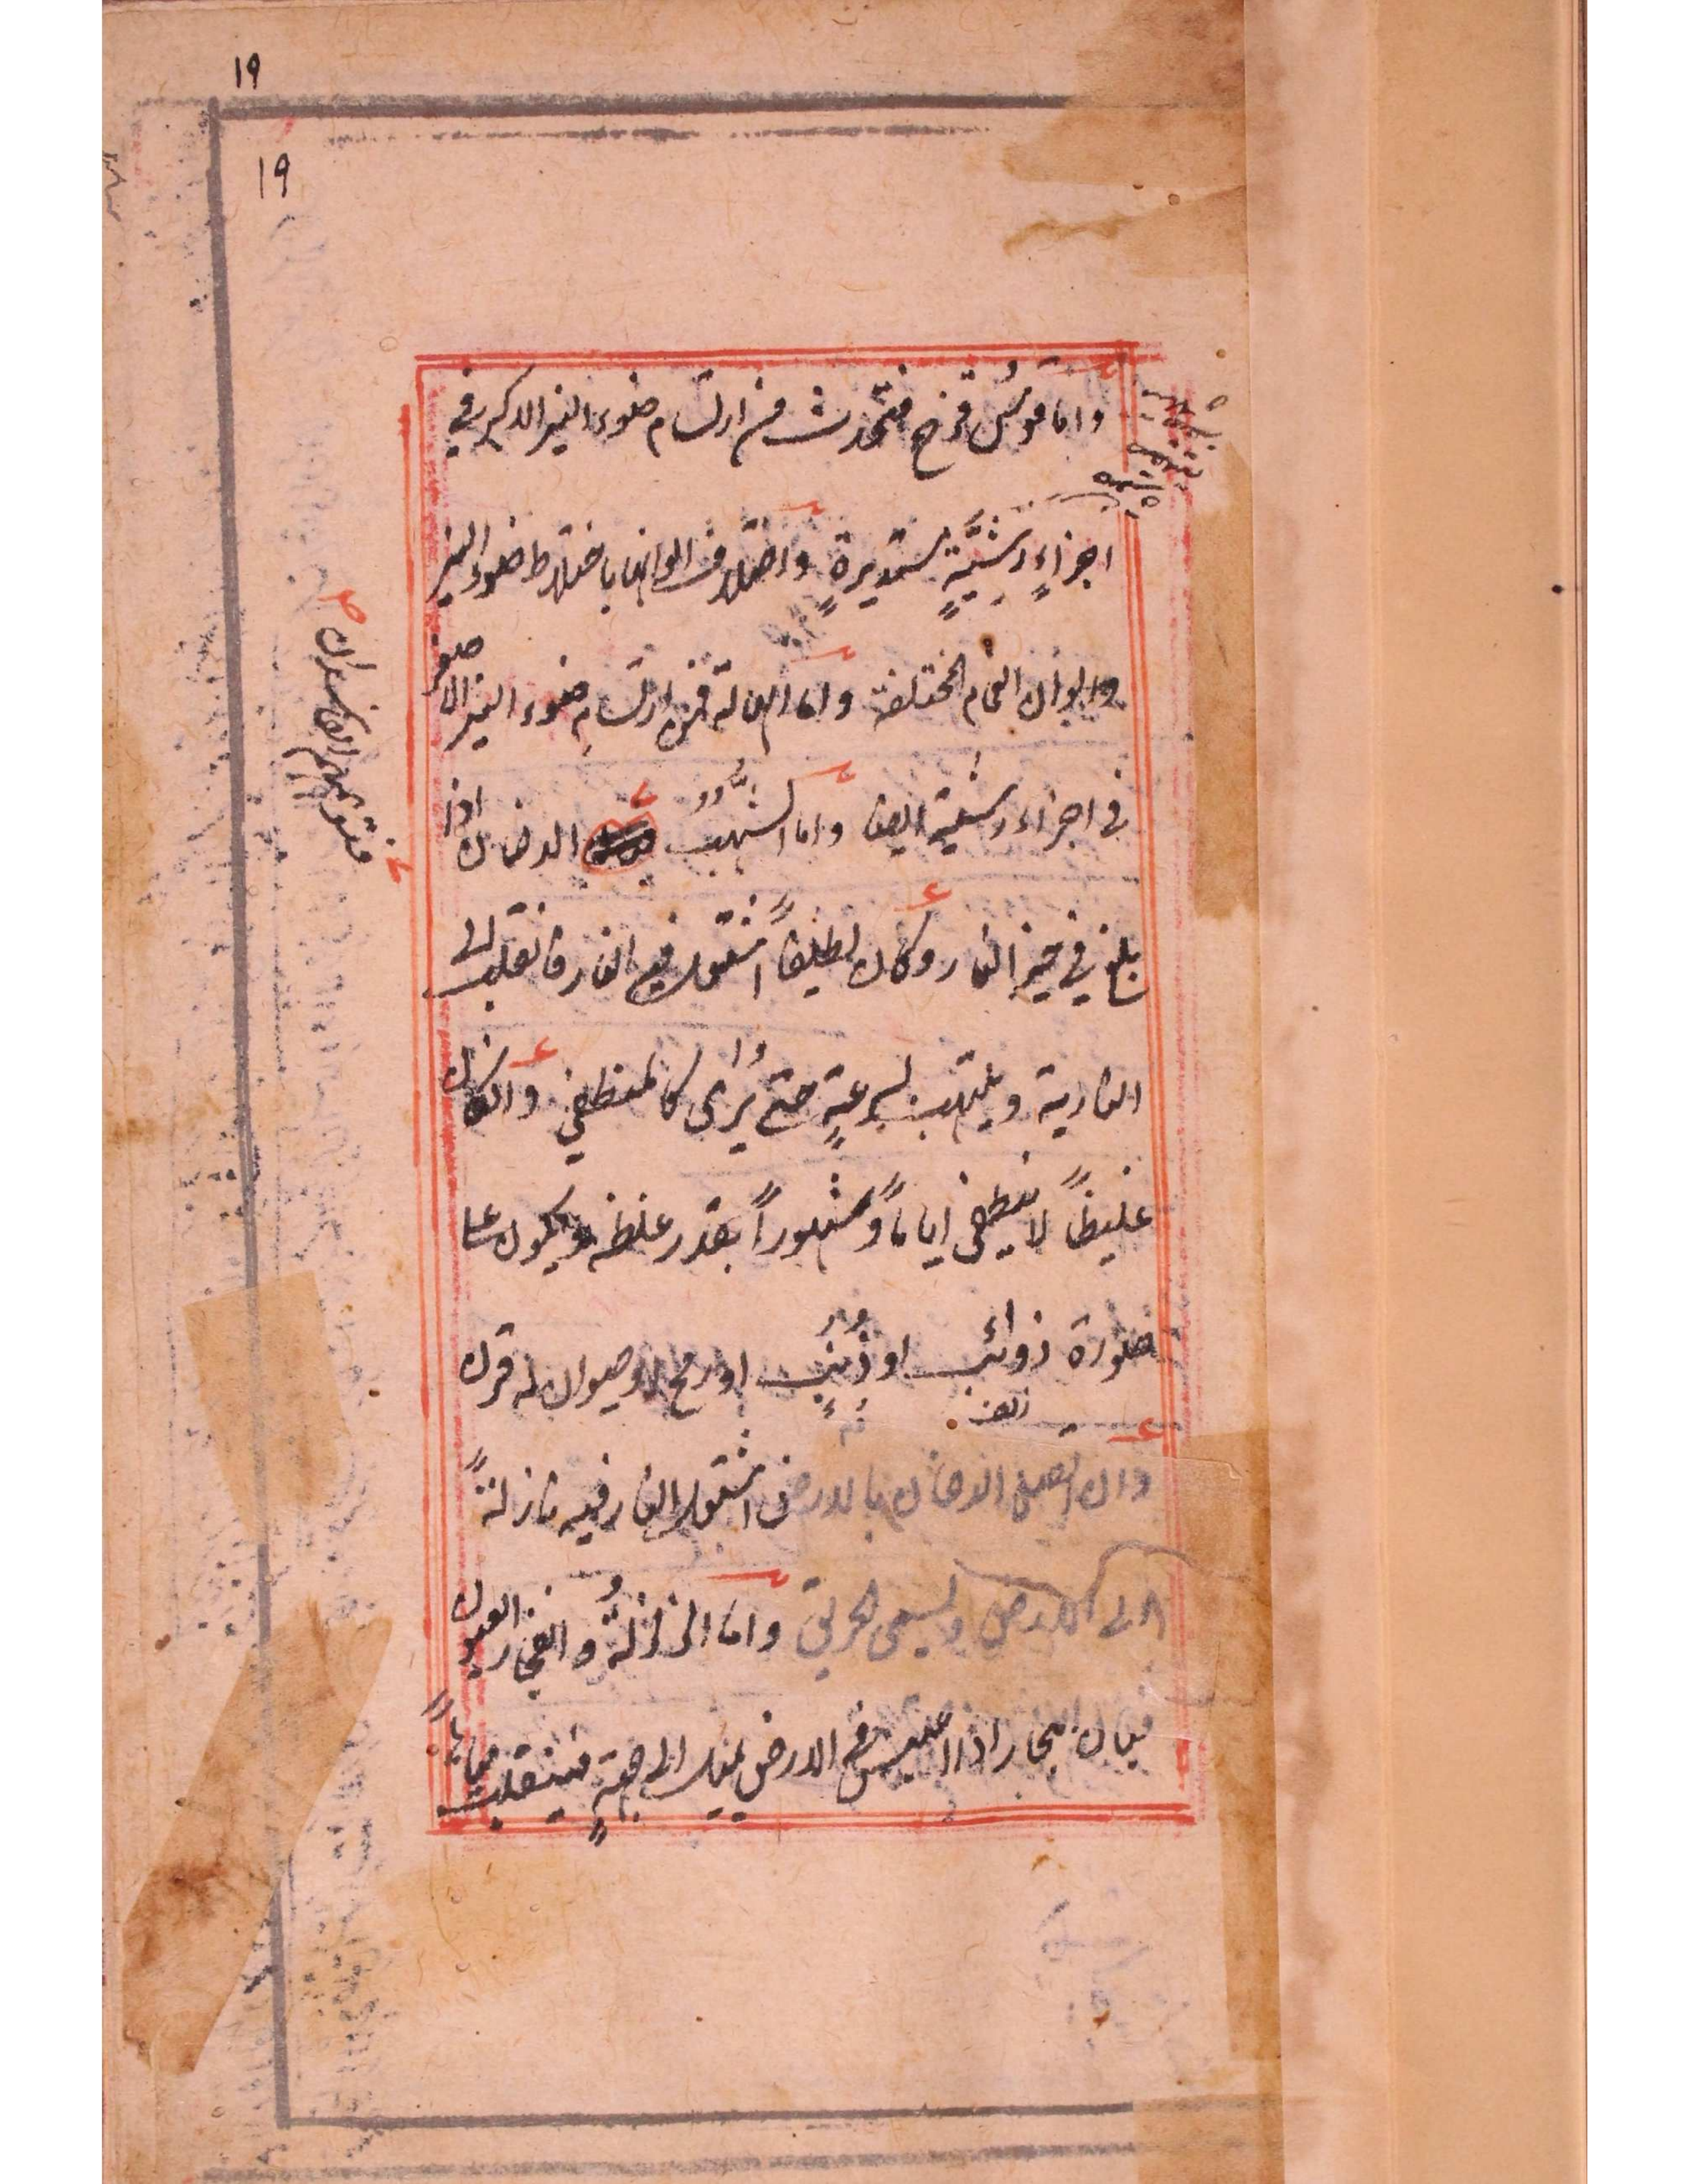 ١٩
١٩
واما قوسُ قزح فتحدث من ارتسام ضوء النير الاكبر في
اجزاءٍ رشيَّةٍ مستديرةٍ واختلاف الوانها باختلاط ضوء النير
والوان الغمام المختلفة واما الهالة فمن ارتسام ضوء النير الاصغر
في اجزاء رشية ايضا واما الشهب الدخان اذا
بلغ في حيز النار وكان لطيفاً اشتعل فيه النار فانقلب الى
النارية ويلتهب بسرعةٍ حتى يُرى كالمنطفي وان كان
غليظاً لا ينطفي اياماً وشهوراً بقدر غلظه ويكون على
صورة ذوائب او ذنب او رمح او حيوان له قرن
وان اتصل الدخان بالارض اشتعل النار فيه نازلةً
الى الارض ويسمى الحريق واما الزلزلةُ وانفجار العيون
فبان البخار اذا احتبس في الارض يميل الى جهةٍ فينقلب مياهاً